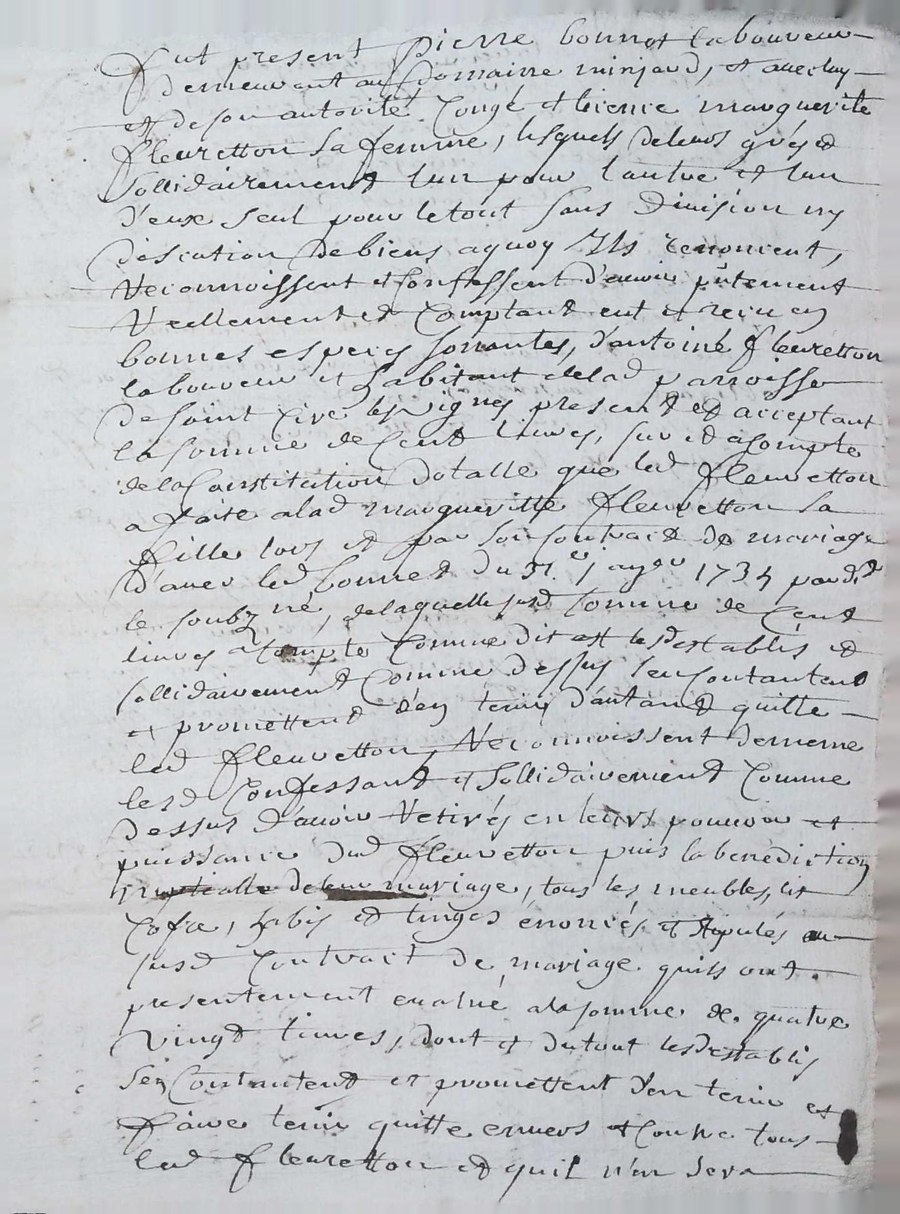 Fut present pierre bonnot laboureur
demeurant au Domaine minjard, et avecluy
et de son autorité Congé et licence marguerite
fleuretton sa femme, lesquels deleurs grés et
sollidairement lun pour lautre et lun
d'eux seul pour letout sans division ny
discution debiens aquoy Ils renoncent,
Reconnoissent et Confessent d'avoir pntement
Reellement et Comptant eut et receu en
bonnes especes sonnantes, d'antoine fleuretton
laboureur et habitant delad parroisse
de saint Cire les vignes present et acceptant
la somme de Cent livres, sur et acompte
dela Constitution dotalle que led fleuretton
a faite alad margueritte fleuretton sa
fille lors et par son Contract de mariage
d'avec led bonnet du 31e janver 1734 par dt
le soubzné, delaquelle susd somme de Cent
livres acompte Comme dit est lesd establis et
sollidairement Comme dessus sen Contantent
et promettent d'en tenir d'autant quitte
led fleuretton, Reconnoissent dememe
lesd Confessant et sollidairement Comme
dessus d'avoir Retirés en leurs pouvoir et
puissance dud fleuretton puis la benediction
nuptialle de leur mariage, tous les meubles, lit
Cofre, habis et linges énoncés et stipulés au
susd Contract de mariage quils ont
presentement evalué alasomme de quatre
vingt livres, dont et dutout lesd establis
sen Contantent et promettent d'en tenir et
faire tenir quitte envers et contre tous
led fleuretton et quil n'en sera